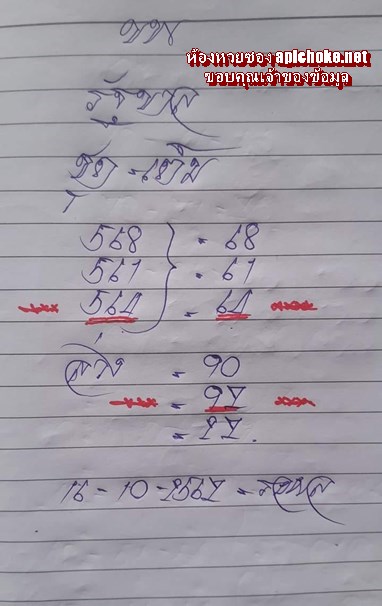 ห้องหวยซอง apichoke.net
ขอบคุณเจ้าของข้อมูล
รัฐบาล
568 = 68
561 = 61
564 = 64
ล่าง = 90
= 97
= 27.
16-10-2567 =